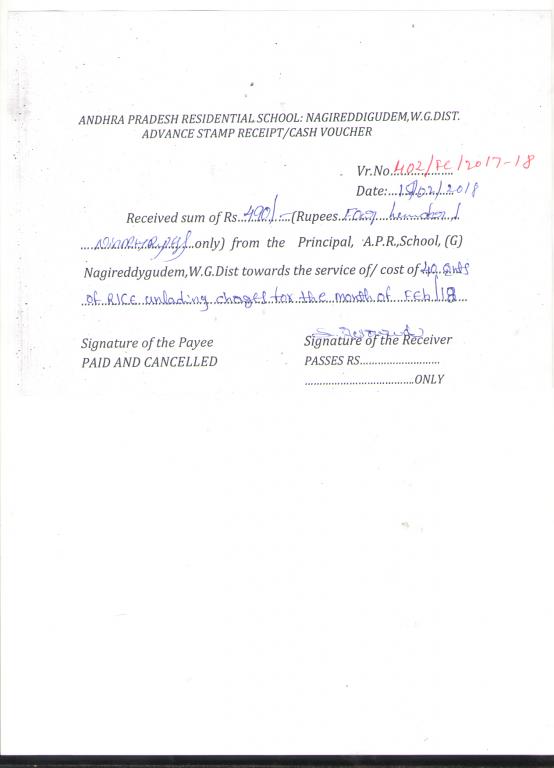 ANDHRA PRADESH RESIDENTIAL SCHOOL: NAGIREDDIGUDEM,W.G.DIST.
ADVANCE STAMP RECEIPT/CASH VOUCHER
Vr.No.402/FC/2017-18
Date:...15/02/2018
Received sum of Rs..490/-..(Rupees..Four hundred
Ninety Rupees only) from the Principal, A.P.R.,School, (G)
Nagireddygudem,W.G.Dist towards the service of/ cost of
of RICE unlading charges for the month of Feb/18
Signature of the Payee
Signature of the Receiver
PAID AND CANCELLED
PASSES RS...........................
.....................................ONLY